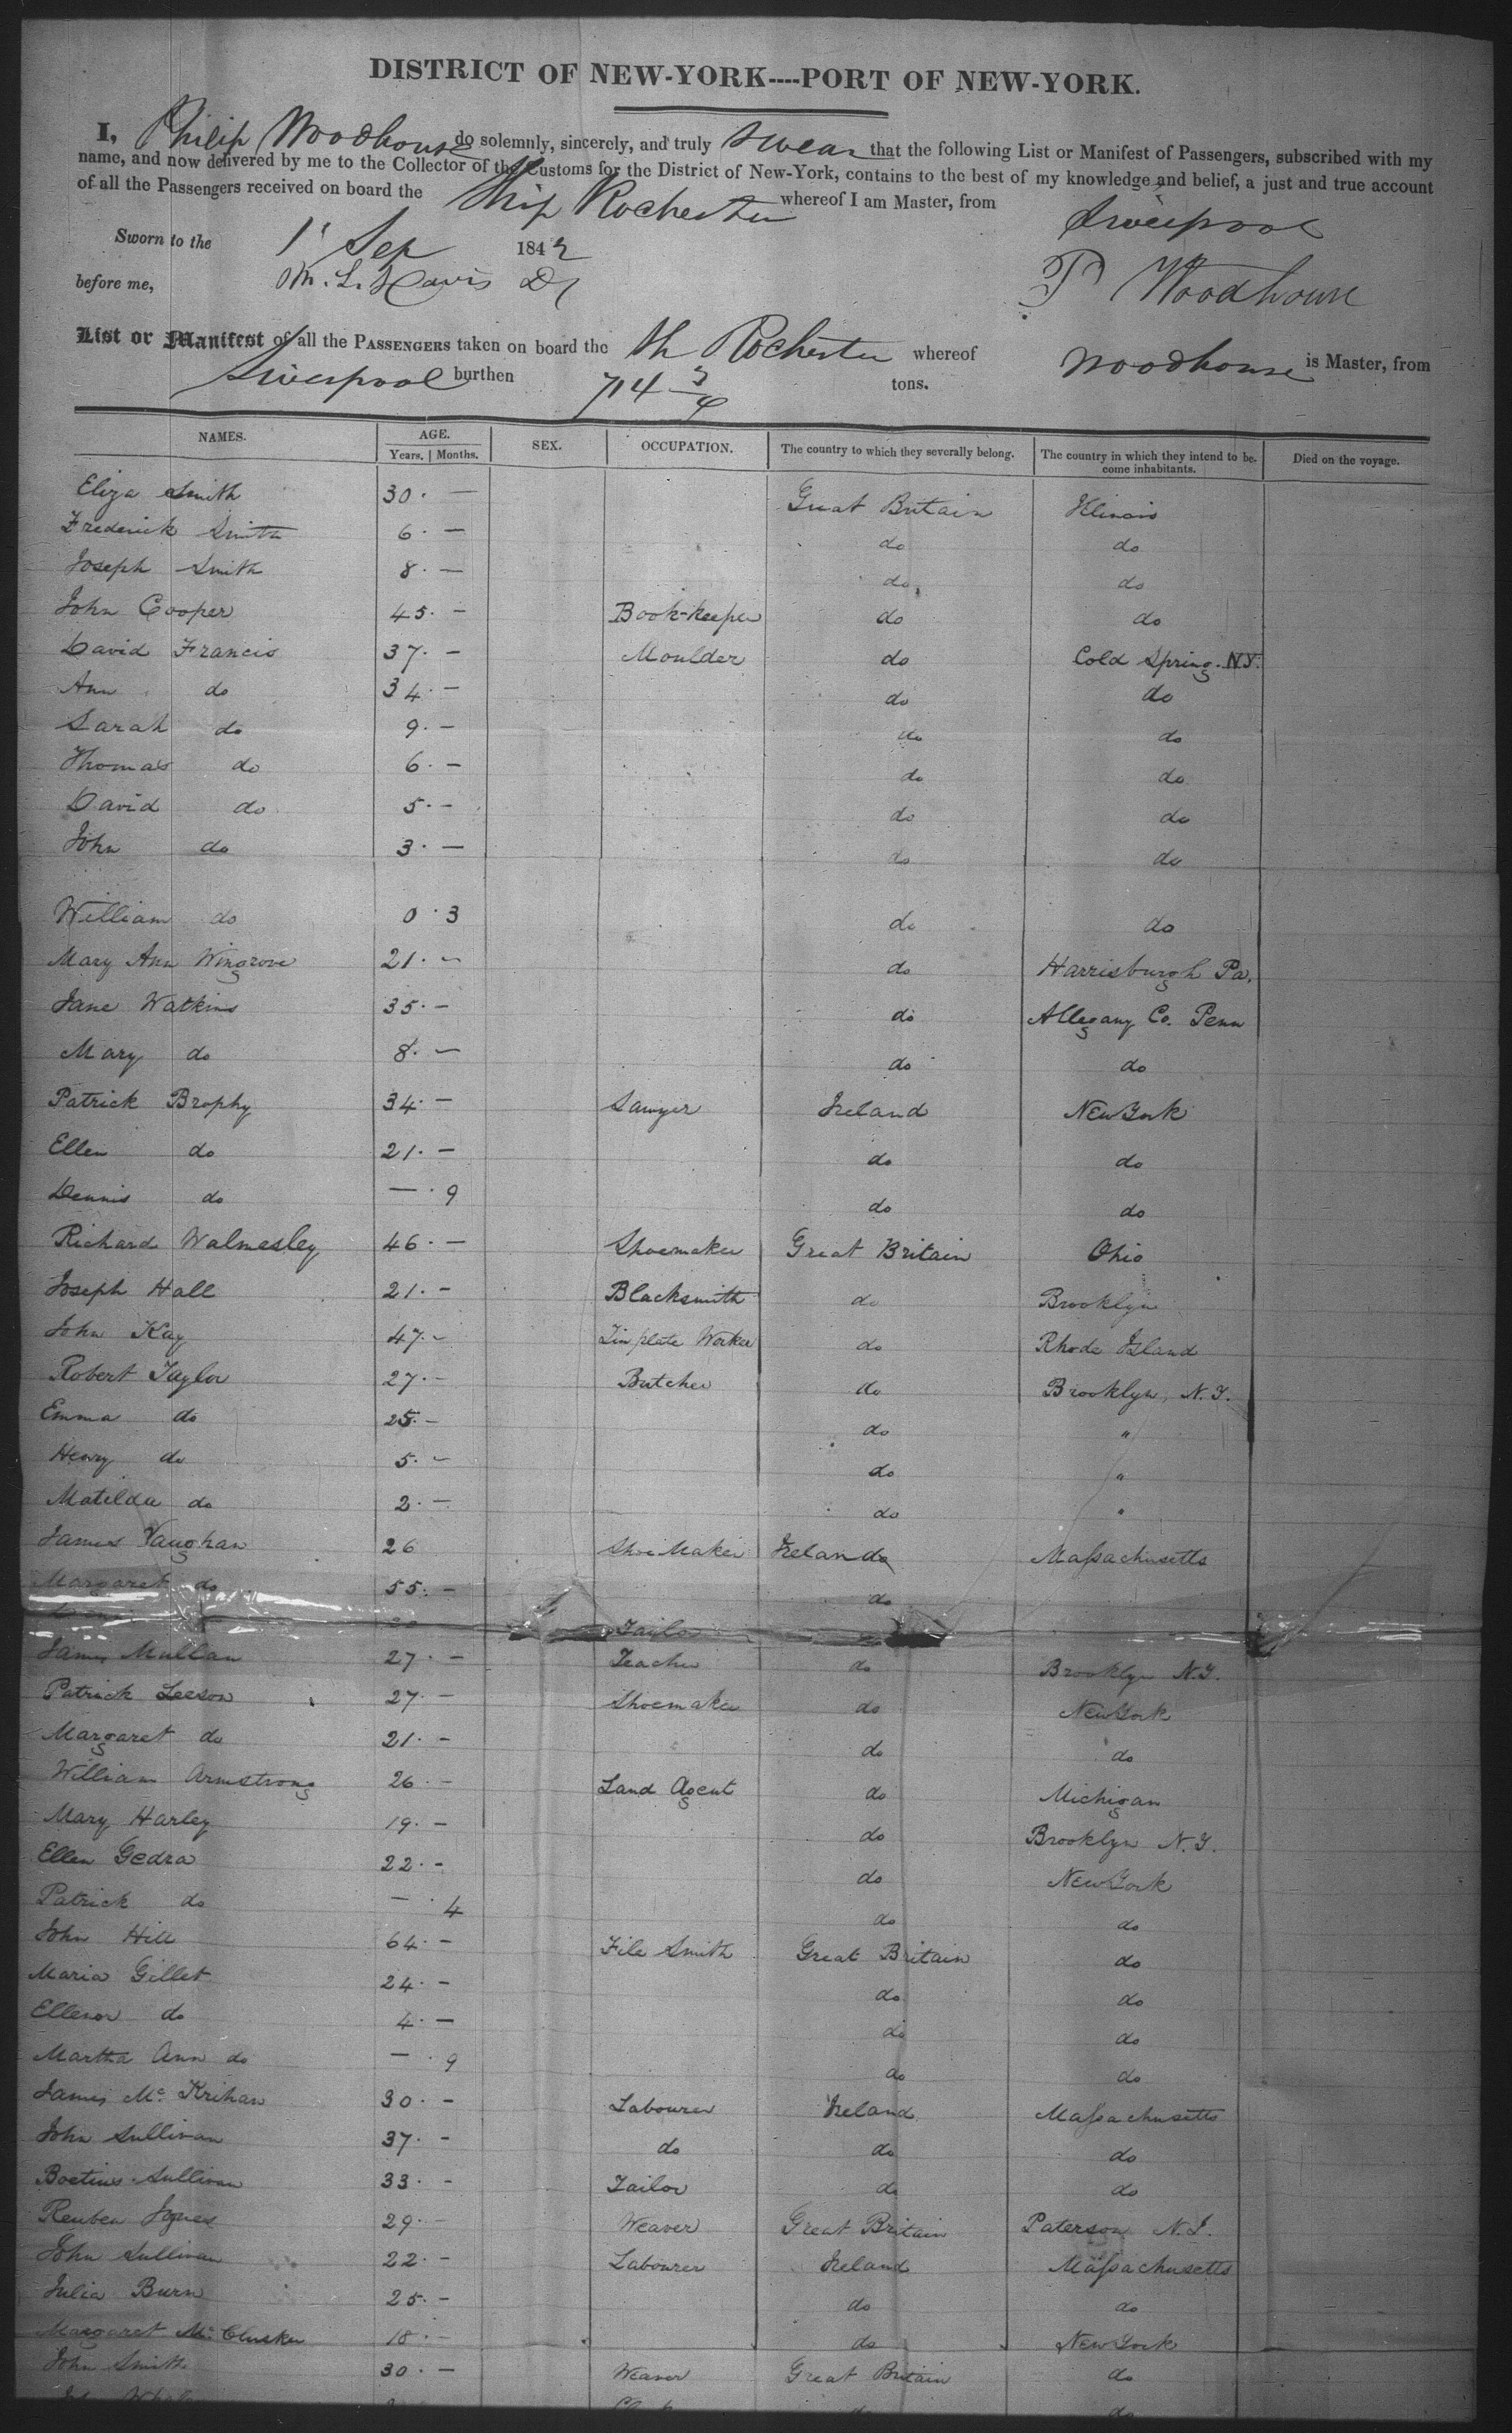 DISTRICT OF NEW-YORK----PORT OF NEW-YORK.
I, Philip Woodhouse do solemnly, sincerely, and truly swear that the following List or Manifest of Passengers, subscribed with my
name, and now delivered by me to the Collector of the Customs for the District of New-York, contains to the best of my knowledge and belief, a just and true account
of all the Passengers received on board the Ship Rochester whereof I am Master, from Liverpool
Sworn to the 1 Sep 1842
before me, M. L. Davis P Woodhouse
List or Manifest of all the PASSENGERS taken on board the Sh Rochester whereof Woodhouse is Master, from
Liverpool burthen 714 3/4 tons.
NAMES. AGE. Years. | Months. SEX. OCCUPATION. The country to which they severally belong. The country in which they intend to become inhabitants. Died on the voyage.
Eliza Smith 30 . — Great Britain Illinois
Frederick Smith 6 . — do do
Joseph Smith 8 . — do do
John Cooper 45 . — Book-keeper do do
David Francis 37 . — Moulder do Cold Spring. N.Y.
Ann do 34 . — do do
Sarah do 9 . — do do
Thomas do 6 . — do do
David do 5 . — do do
John do 3 . — do do
William do 0 . 3 do do
Mary Ann Wingrove 21 . — do Harrisburgh Pa.
Jane Watkins 35 . — do Allegany Co. Penn
Mary do 8 . — do do
Patrick Brophy 34 . — Sawyer Ireland New York
Ellen do 21 . — do do
Dennis do — . 9 do do
Richard Walmesley 46 . — Shoemaker Great Britain Ohio
Joseph Hall 21 . — Blacksmith do Brooklyn
John Kay 47 . — Tin plate Worker do Rhode Island
Robert Taylor 27 . — Butcher do Brooklyn, N.Y.
Emma do 25 . — do "
Henry do 5 . — do "
Matilda do 2 . — do "
James Vaughan 26 Shoe Maker Ireland Massachusetts
Margaret do 55 . — do
20 Tailor
James Mullan 27 . — Teacher do Brooklyn N.Y.
Patrick Leeson 27 . — Shoemaker do New York
Margaret do 21 . — do do
William Armstrong 26 . — Land Agent do Michigan
Mary Harley 19 . — do Brooklyn N.Y.
Ellen Gedra 22 . — do New York
Patrick do — . 4 do do
John Hill 64 . — File Smith Great Britain do
Maria Gillet 24 . — do do
Ellenor do 4 . — do do
Martha Ann do — . 9 do do
James Mc Krihan 30 . — Labourer Ireland Massachusetts
John Sullivan 37 . — do do do
Boetius Sullivan 33 . — Tailor do do
Reuben Jones 29 . — Weaver Great Britain Paterson N.J.
John Sullivan 22 . — Labourer Ireland Massachusetts
Julia Burn 25 . — do do
Margaret Mc Clusker 18 . — do New York
John Smith 30 . — Weaver Great Britain do
do do